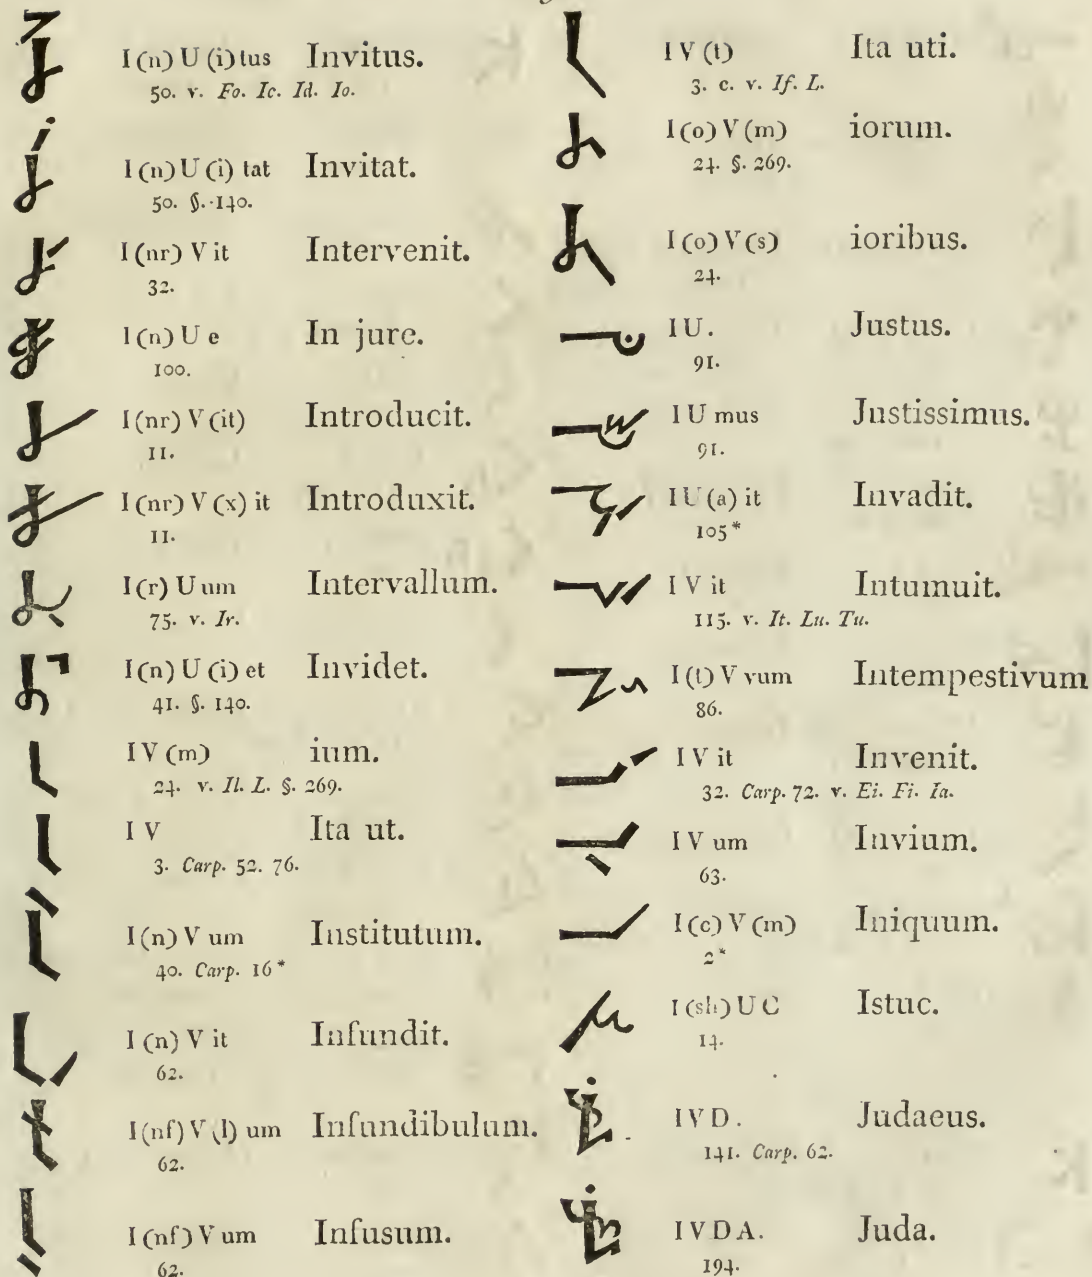 I (n) U (i) tus Invitus.
50. v. Fo. Ic. Id. Io.
I (n) U (i) tat Invitat.
50. §. 140.
I (nr) V it Intervenit.
32.
I (n) U e In jure.
100.
I (nr) V (it) Introducit.
11.
I (nr) V (x) it Introduxit.
11.
I (r) U um Intervallum.
75. v. Ir.
I (n) U (i) et Invidet.
41. §. 140.
I V (m) ium.
24. v. Il. L. §. 269.
I V Ita ut.
3. Carp. 52. 76.
I (n) V um Institutum.
40. Carp. 16*
I (n) V it Infundit.
62.
I (nf) V (l) um Infundibulum.
62.
I (nf) V um Infusum.
62.
I V (t) Ita uti.
3. c. v. If. L.
I (o) V (m) iorum.
24. §. 269.
I (o) V (s) ioribus.
24.
I U. Justus.
91.
I U mus Justissimus.
91.
I U (a) it Invadit.
105*
I V it Intumuit.
115. v. It. Lu. Tu.
I (t) V vum Intempestivum
86.
I V it Invenit.
32. Carp. 72. v. Ei. Fi. Ia.
I V um Invium.
63.
I (c) V (m) Iniquum.
2*
I (sh) U C Istuc.
14.
I V D. Judaeus.
141. Carp. 62.
I V D A. Juda.
194.